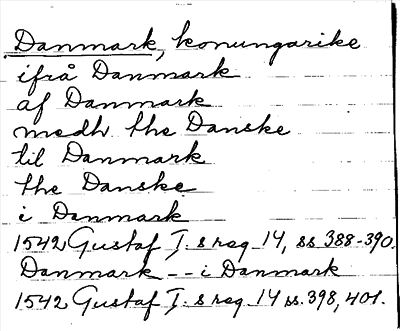 Danmark, konungarike
ifrå Danmark
af Danmark
medh the Danske
til Danmark
the Danske
i Danmark
1542 Gustaf I:s reg 14, ss 388-390.
Danmark -- i Danmark
1542 Gustaf I:s reg 14 ss. 398, 401.